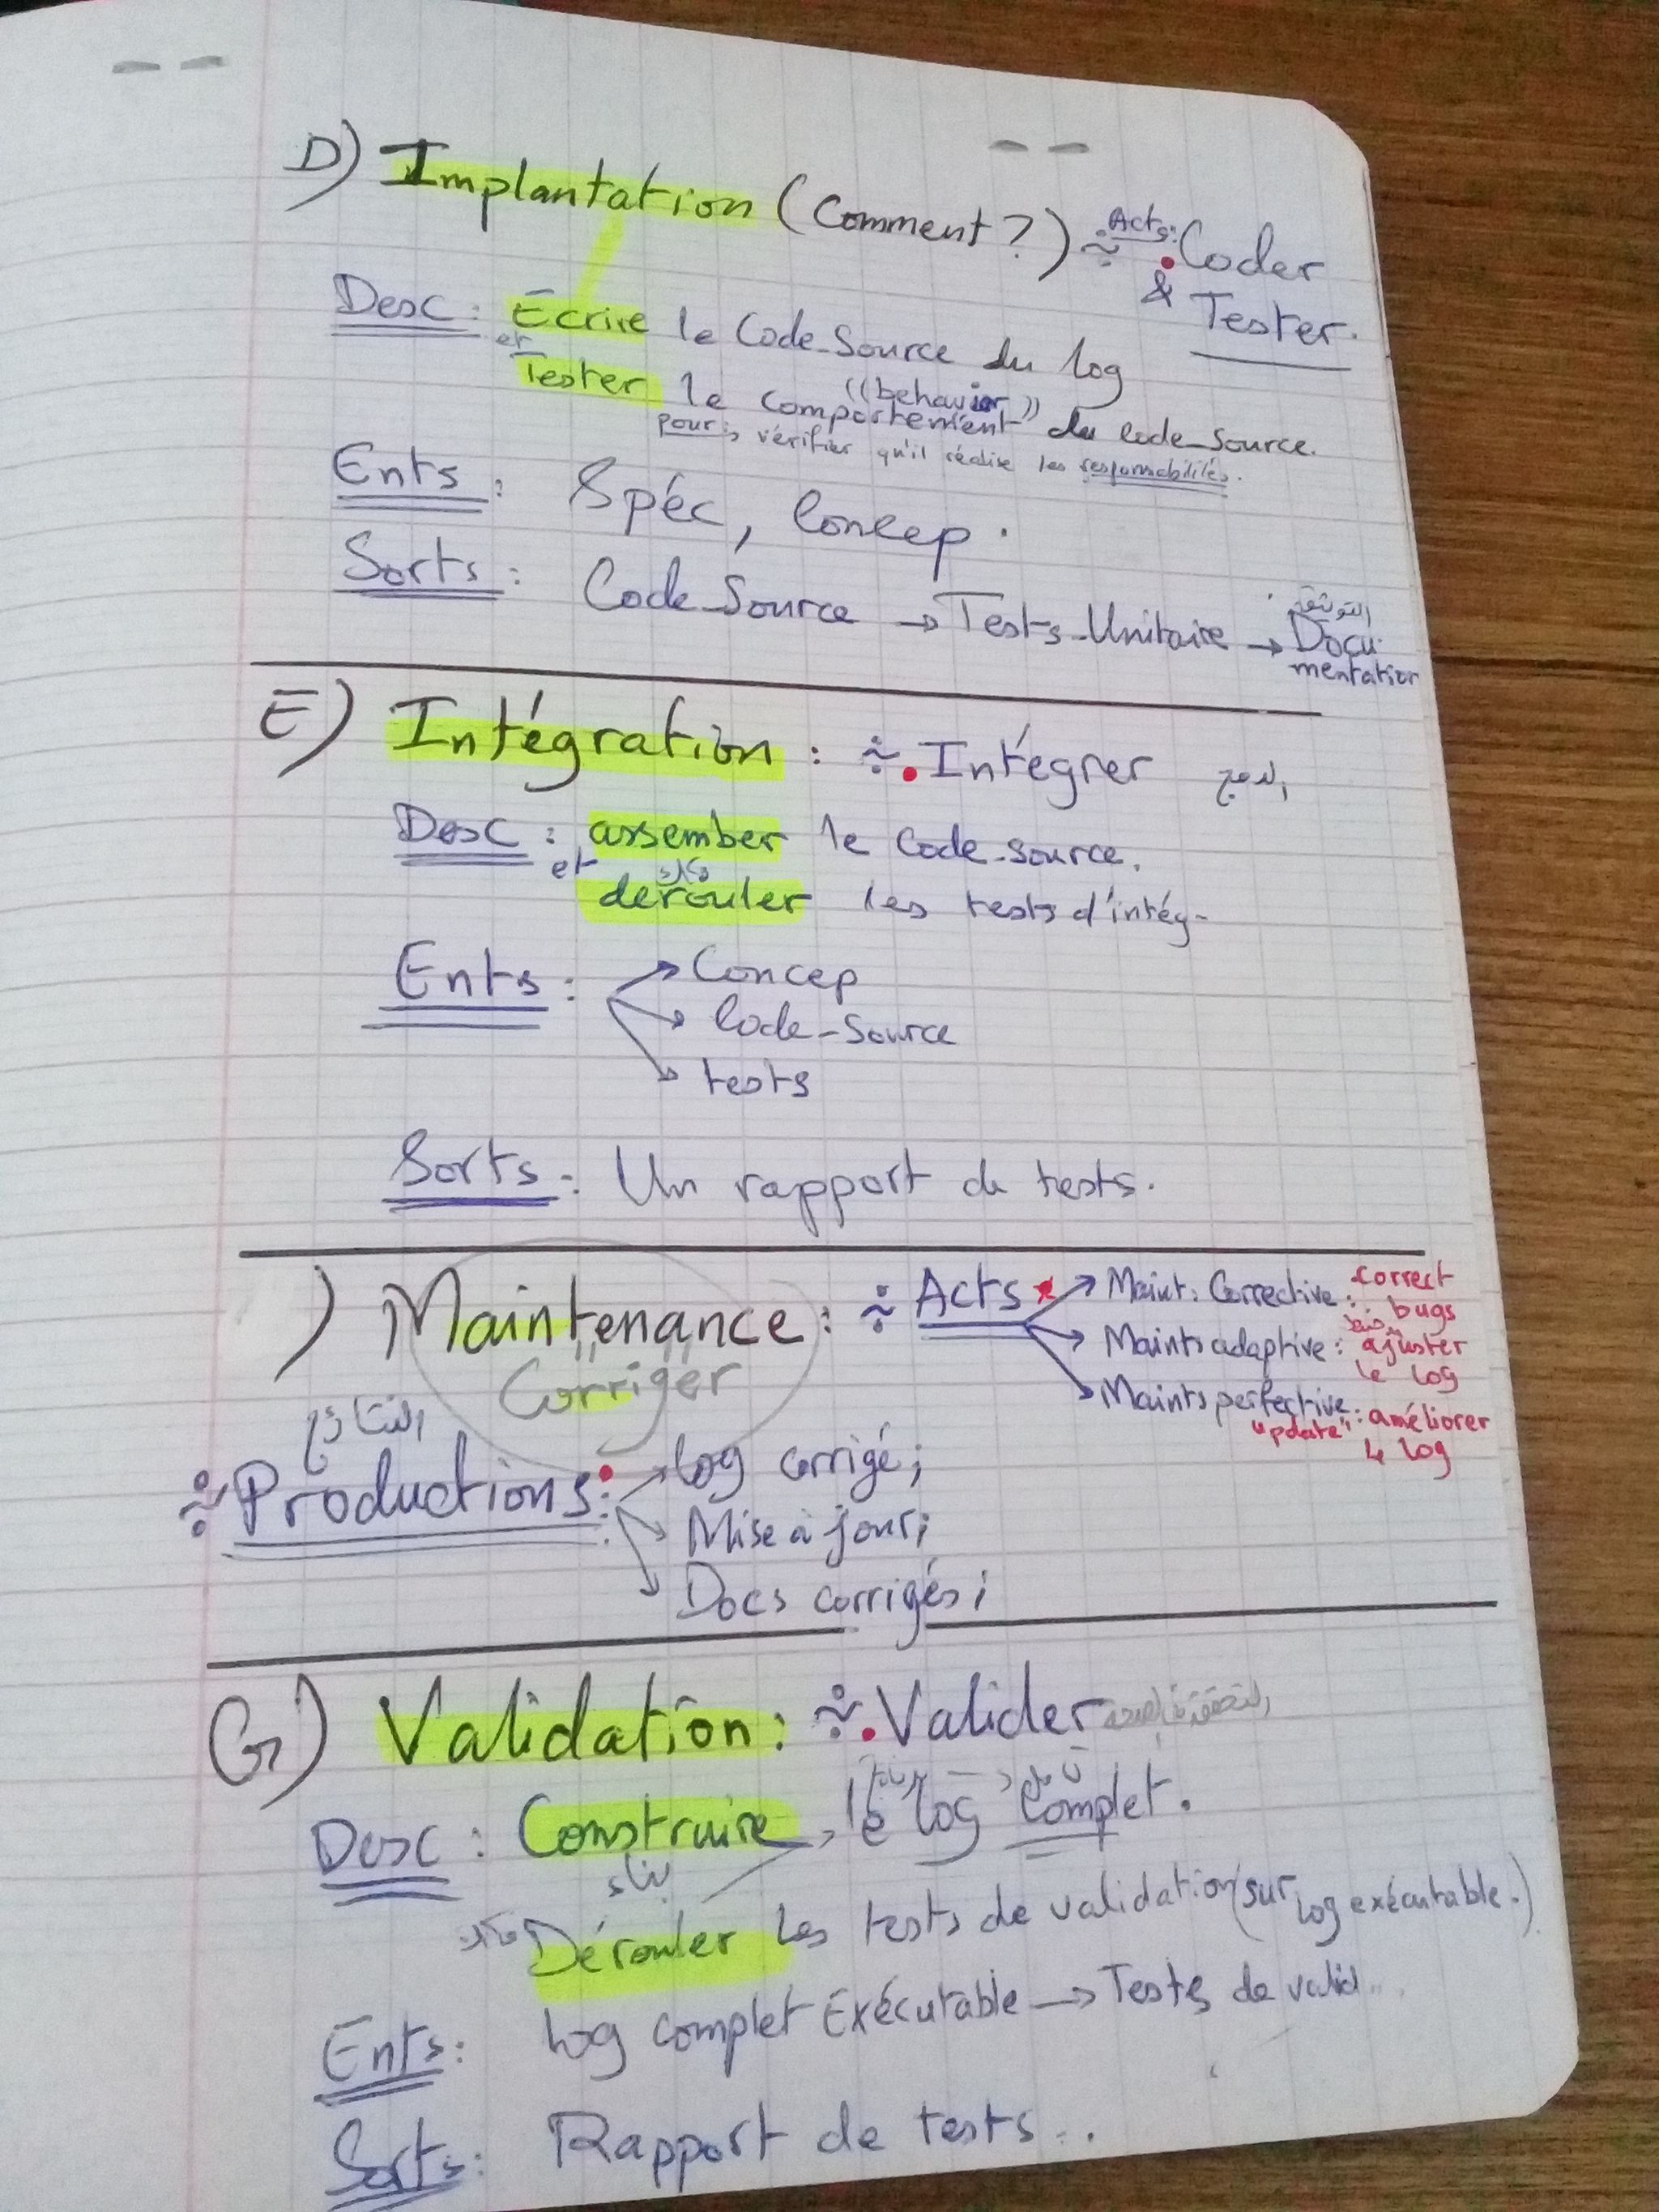 D) Implantation (Comment?) Acts: Coder
& Tester.
Desc : Écrire le Code-Source du log
et Tester le comportement ((behavior)) du code-source.
pour: vérifier qu'il réalise les responsabilités.
Ents : Spéc, Concep.
Sorts : Code-Source → Tests-Unitaire → Docu-
mentation
E) Intégration : Intégrer الدمج
Desc : assember le code-source.
et derouler les tests d'intég-
Ents : → Concep
→ Code-Source
→ tests
Sorts : Un rapport de tests.
) Maintenance : Acts → Maint: Corrective : correct
bugs
→ Maints adaptive : ajuster
le log
"Corriger"
→ Maints perfective : améliorer
"update" le log
النتائج
Productions : → log corrigé;
→ Mise à jour;
→ Docs corrigés;
G) Validation : Valider
Desc : Construire le log Complet.
بناء
Dérouler les tests de validation (sur log exécutable.)
Ents : log complet Exécutable → Tests de valid..
Sorts : Rapport de tests..